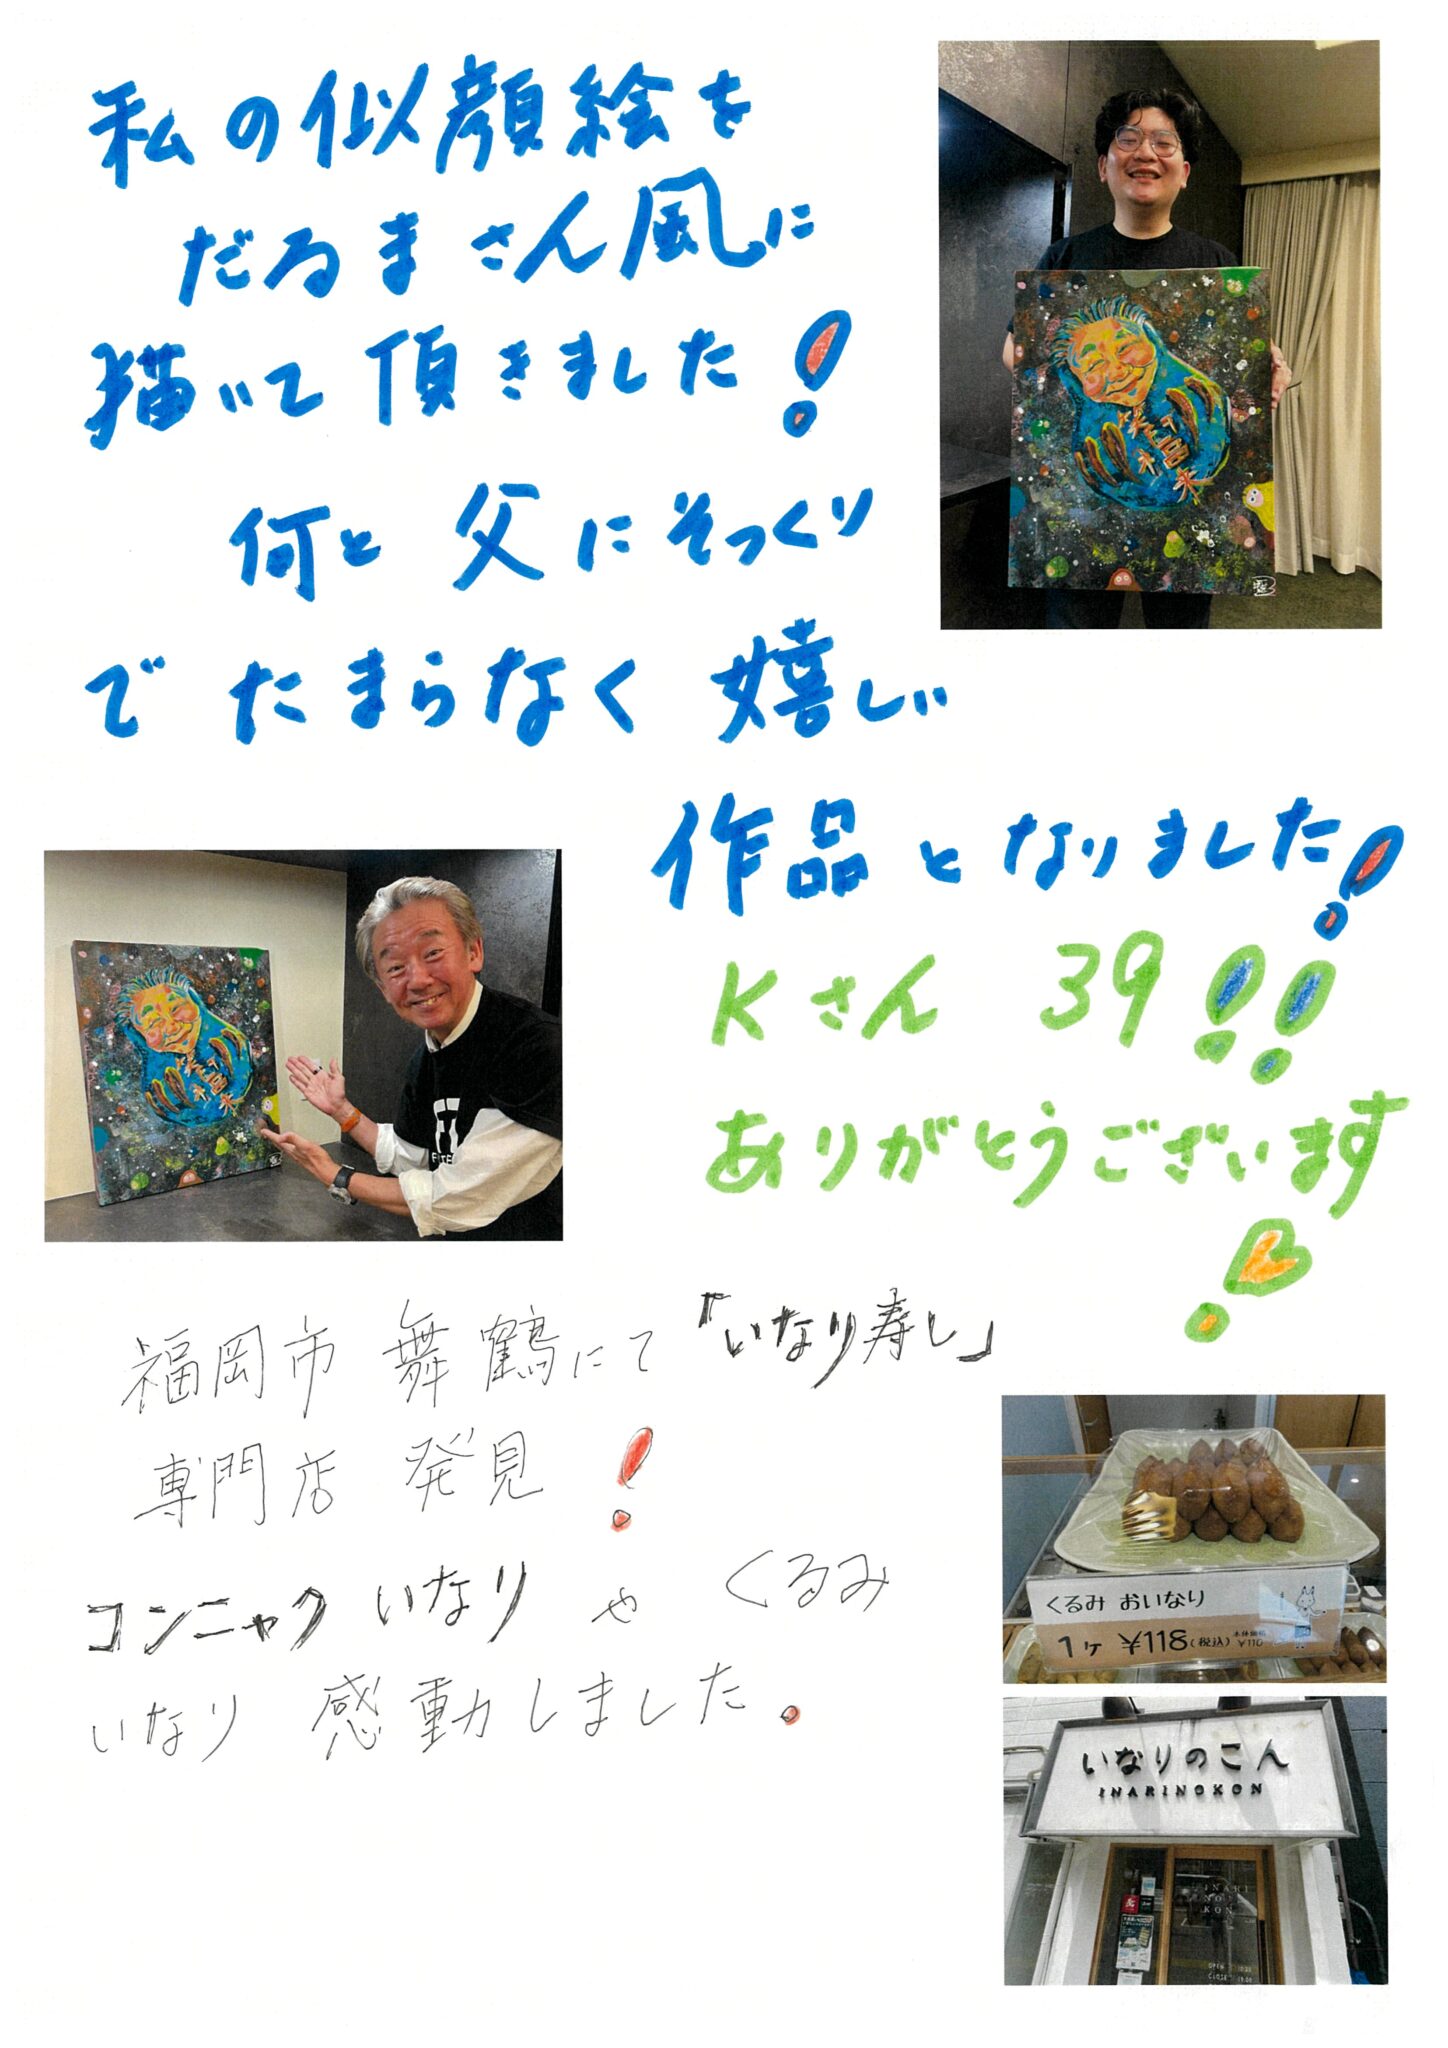 私の似顔絵を
だるまさん風に
描いて頂きました！
何と父にそっくり
でたまらなく嬉しい
作品となりました！
Kさん 39！！
ありがとうございます
！
福岡市 舞鶴にて「いなり寿し」
専門店 発見！
コンニャクいなり や くるみ
いなり 感動しました。
くるみ おいなり
1ヶ ¥118(税込) 本体価格 ¥110
いなりのこん
INARINOKON
INARI
NO
KON
OPEN
CLOSE